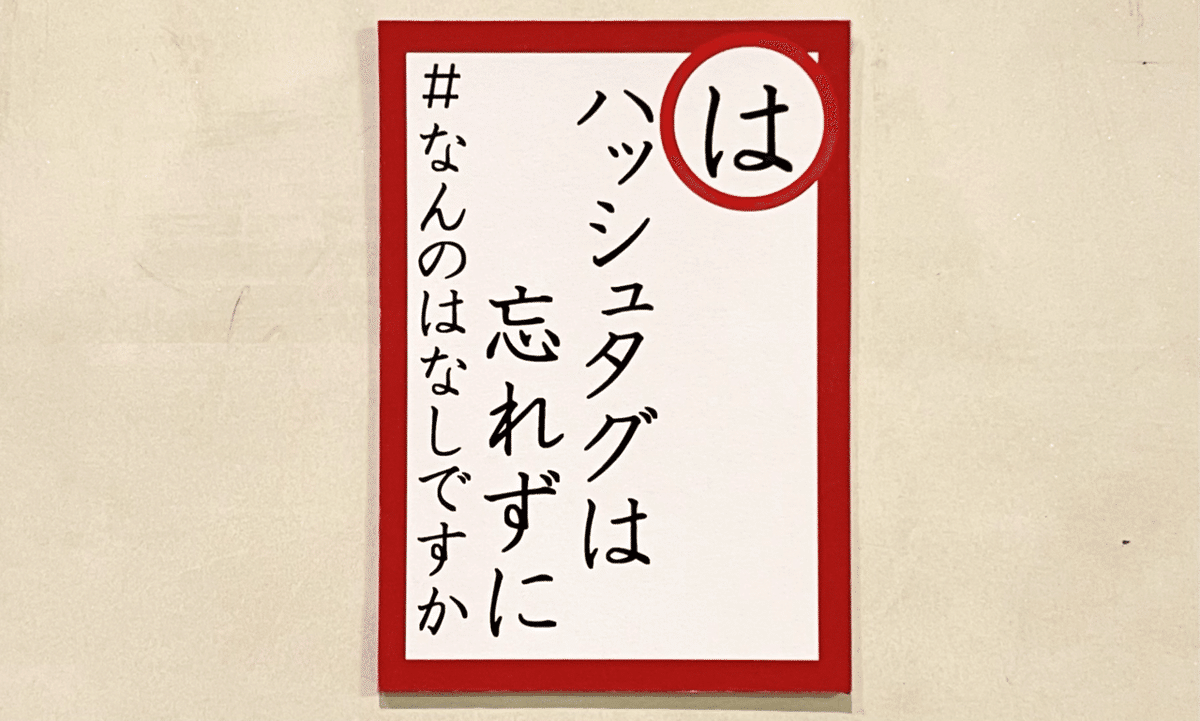 は
ハッシュタグは
忘れずに
#なんのはなしですか